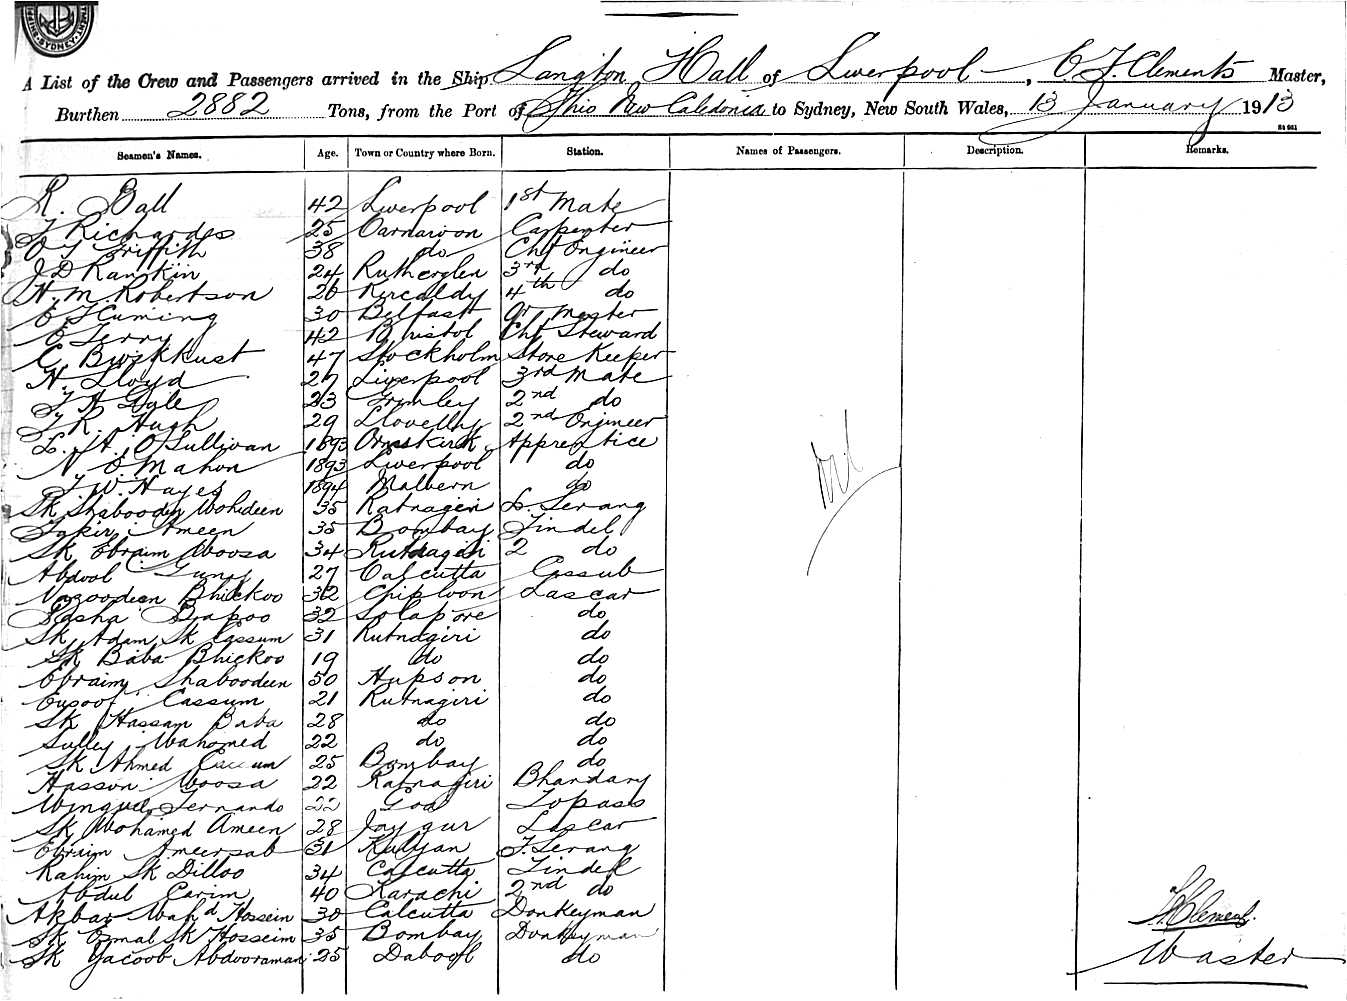 SYDNEY
A List of the Crew and Passengers arrived in the Ship Langton Hall of Liverpool, C T Clements Master,
Burthen 2882 Tons, from the Port of Thio New Caledonia to Sydney, New South Wales, 13 January 1913
Seamen's Names. Age. Town or Country where Born. Station. Names of Passengers. Description. Remarks.
R. Ball 42 Liverpool 1st Mate
T Richards 25 Carnarvon Carpenter
O T Griffith 38 do Chf Engineer
J D Rankin 24 Rutherglen 3rd do
H. M. Robertson 26 Kircaldy 4th do
E Fleming 30 Belfast Qr Master
E Terry 42 Bristol Chf Steward
C. 47 Stockholm Store Keeper
H. Lloyd 27 Liverpool 3rd Mate
T H Gale 23 2nd do
T R. Hugh 29 2nd Engineer
L. H. O'Sullivan 1893 Ormskirk Apprentice
N E Mahon 1893 Liverpool do
T W. Hayes 1894 Malvern do
Sk Shaboodin Mohideen 35 Ratnageri D. Serang
Fakir Ameen 35 Bombay Tindel
Sk Ebraim Moosa 34 Rutnagiri 2 do
Abdool Guny 27 Calcutta Cassub
Nazoodeen Bhickoo 32 Chiploon Lascar
Pasha Bapoo 32 Solapore do
Sk Adam Sk Cassum 31 Rutnagiri do
Sk Baba Bhickoo 19 do do
Ebraim Shaboodeen 50 Hupson do
Eusoof Cassum 21 Rutnagiri do
Sk Hassam Baba 28 do do
Sulley Mahomed 22 do do
Sk Ahmed 25 Bombay do
Hasson Moosa 22 Ratnagiri Bhandary
Minguel Fernando 22 Goa Topass
Sk Mohamed Ameen 28 Jaygur Lascar
Ebraim Ameersab 31 Kulyan F. Serang
Rahim Sk Dilloo 34 Calcutta Tindel
Abdul Carim 40 Karachi 2nd do
Akbar Mahd Hossein 30 Calcutta Donkeyman
Sk Esmal Sk Hosseim 35 Bombay Donkeyman
Sk Yacoob Abdooraman 25 Dabool do
Nil
Clements.
Master